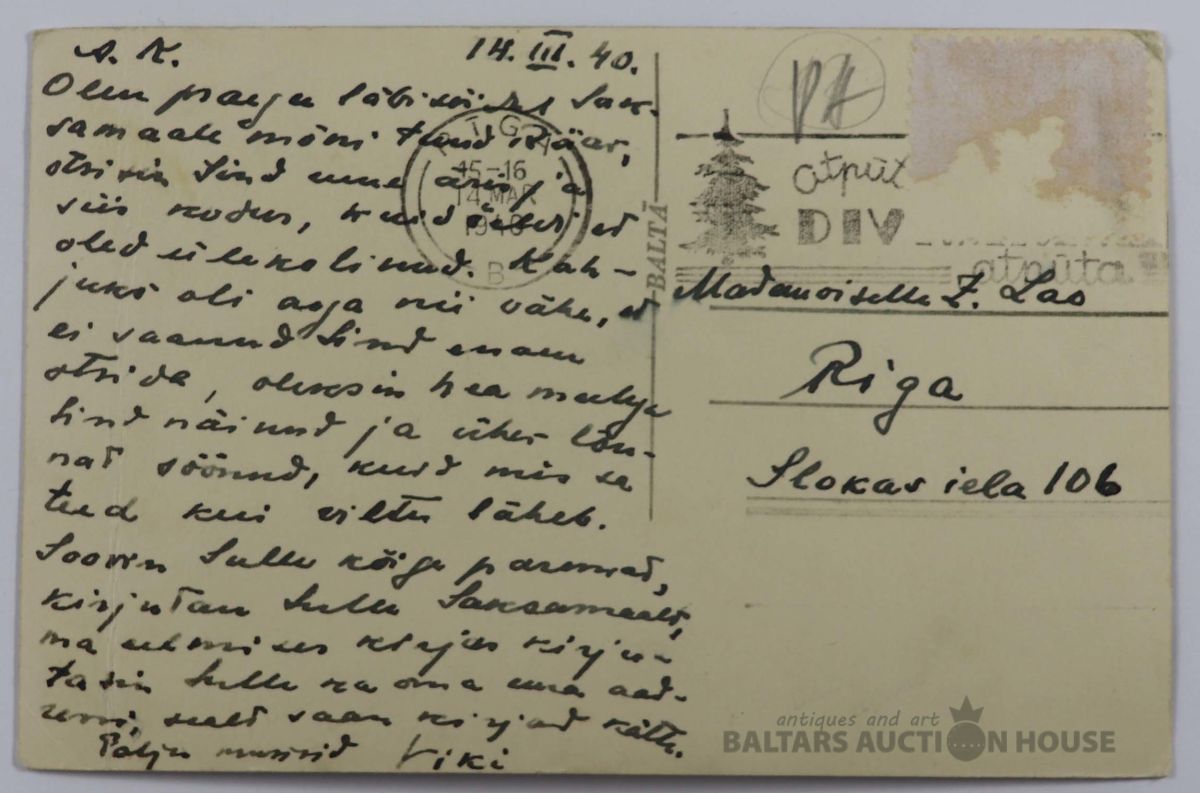 A. K.
14. III. 40.
Olen praegu läbisõidul Sak-
samaale mõni tund Riias,
otsisin Sind enne äris ja
siis kodus, kuid öeldi et
oled ülekolinud. Kah-
juks oli aega nii vähe, et
ei saanud Sind enam
otsida, oleksin hea meelega
Sind näinud ja ühes lõu-
nat söönud, kuid mis sa
teed kui viltu läheb.
Soovin Sulle kõige paremat,
kirjutan Sulle Saksamaalt,
ma eelmises kirjas kirju-
tasin Sulle ka oma uue aad-
ressi, sealt saan kirjad kätte.
Palju musisid Viki
RIGA
15-16
14 MAR
1940
B
BALTĀ
atpūt
DIV
atpūta
Mademoiselle Z. Lao
Riga
Slokas iela 106
antiques and art
BALTARS AUCTION HOUSE